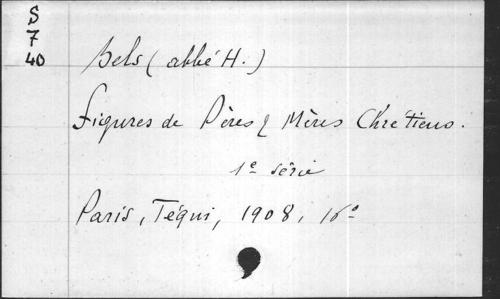 S
7
40
Bels (abbé H.)
Figures de Pères & Mères Chrétiens.
1e série
Paris, Téqui, 1908, 16°